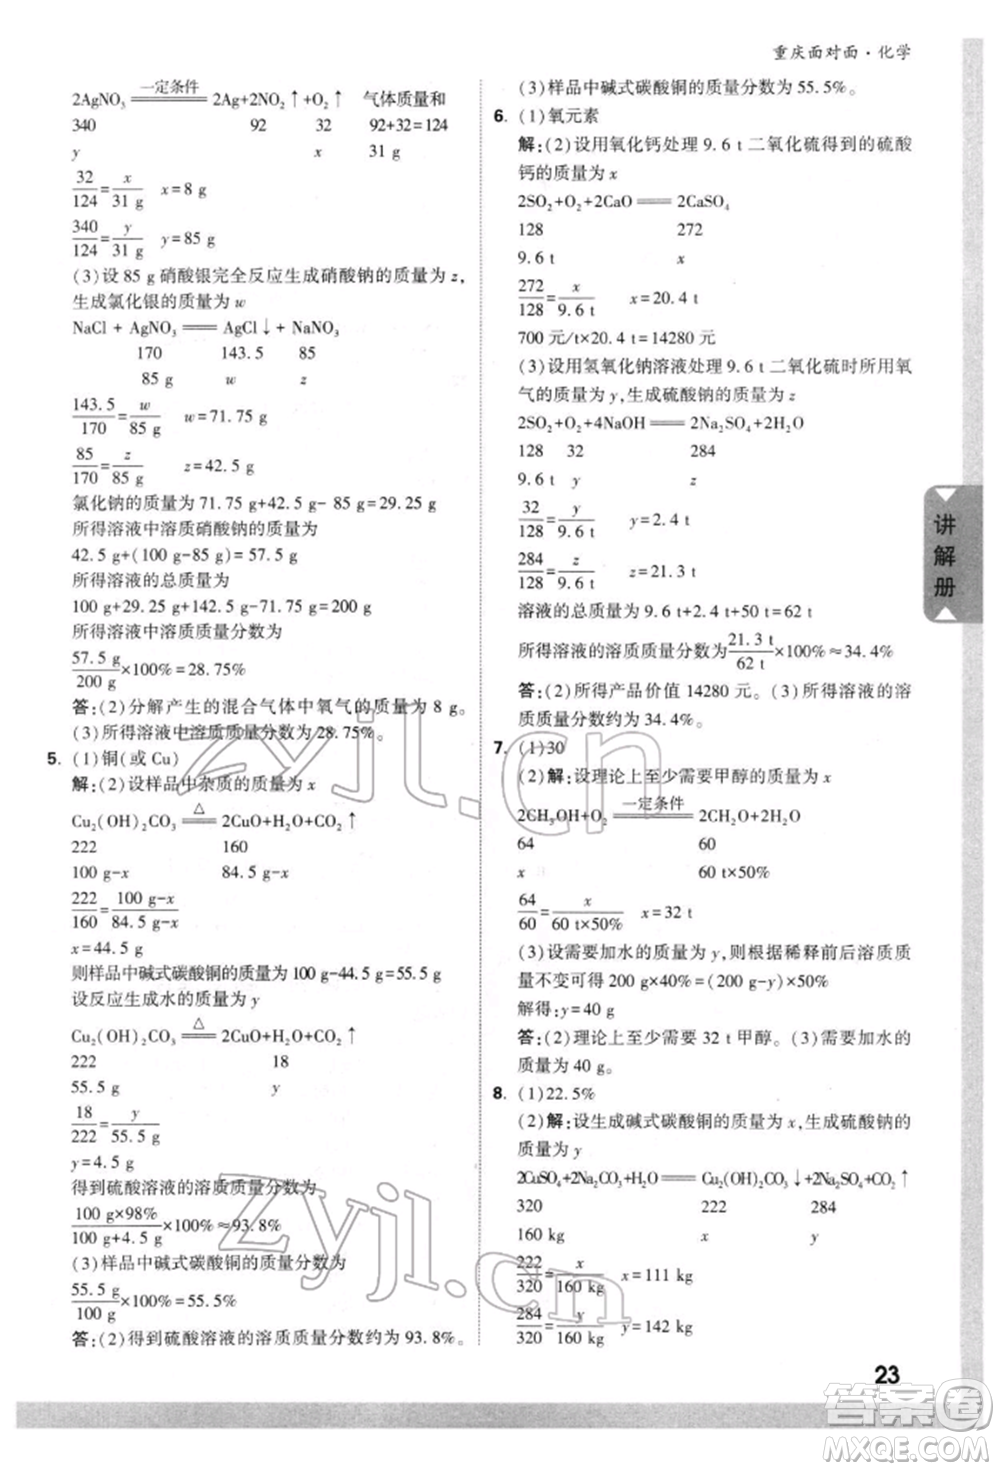 重庆面对面·化学
一定条件
2AgNO₃ ═══ 2Ag+2NO₂↑+O₂↑ 气体质量和
340 92 32 92+32=124
y x 31 g
32/124=x/31 g x=8 g
340/124=y/31 g y=85 g
(3)设 85 g 硝酸银完全反应生成硝酸钠的质量为 z,
生成氯化银的质量为 w
NaCl + AgNO₃ ═══ AgCl↓ + NaNO₃
170 143.5 85
85 g w z
143.5/170=w/85 g w=71.75 g
85/170=z/85 g z=42.5 g
氯化钠的质量为 71.75 g+42.5 g-85 g=29.25 g
所得溶液中溶质硝酸钠的质量为
42.5 g+(100 g-85 g)=57.5 g
所得溶液的总质量为
100 g+29.25 g+142.5 g-71.75 g=200 g
所得溶液中溶质质量分数为
57.5 g/200 g×100%=28.75%
答:(2)分解产生的混合气体中氧气的质量为 8 g。
(3)所得溶液中溶质质量分数为 28.75%。
5. (1)铜(或 Cu)
解:(2)设样品中杂质的质量为 x
Cu₂(OH)₂CO₃ ═△═ 2CuO+H₂O+CO₂↑
222 160
100 g-x 84.5 g-x
222/160=100 g-x/84.5 g-x
x=44.5 g
则样品中碱式碳酸铜的质量为 100 g-44.5 g=55.5 g
设反应生成水的质量为 y
Cu₂(OH)₂CO₃ ═△═ 2CuO+H₂O+CO₂↑
222 18
55.5 g y
18/222=y/55.5 g
y=4.5 g
得到硫酸溶液的溶质质量分数为
100 g×98%/100 g+4.5 g×100%≈93.8%
(3)样品中碱式碳酸铜的质量分数为
55.5 g/100 g×100%=55.5%
答:(2)得到硫酸溶液的溶质质量分数约为 93.8%。
(3)样品中碱式碳酸铜的质量分数为 55.5%。
6. (1)氧元素
解:(2)设用氧化钙处理 9.6 t 二氧化硫得到的硫酸
钙的质量为 x
2SO₂+O₂+2CaO ═══ 2CaSO₄
128 272
9.6 t x
272/128=x/9.6 t x=20.4 t
700 元/t×20.4 t=14280 元
(3)设用氢氧化钠溶液处理 9.6 t 二氧化硫时所用氧
气的质量为 y,生成硫酸钠的质量为 z
2SO₂+O₂+4NaOH ═══ 2Na₂SO₄+2H₂O
128 32 284
9.6 t y z
32/128=y/9.6 t y=2.4 t
284/128=z/9.6 t z=21.3 t
溶液的总质量为 9.6 t+2.4 t+50 t=62 t
所得溶液的溶质质量分数为21.3 t/62 t×100%≈34.4%
答:(2)所得产品价值 14280 元。(3)所得溶液的溶
质质量分数约为 34.4%。
7. (1)30
(2)解:设理论上至少需要甲醇的质量为 x
一定条件
2CH₃OH+O₂ ═══ 2CH₂O+2H₂O
64 60
x 60 t×50%
64/60=x/60 t×50% x=32 t
(3)设需要加水的质量为 y,则根据稀释前后溶质质
量不变可得 200 g×40%=(200 g-y)×50%
解得:y=40 g
答:(2)理论上至少需要 32 t 甲醇。(3)需要加水的
质量为 40 g。
8. (1)22.5%
(2)解:设生成碱式碳酸铜的质量为 x,生成硫酸钠的
质量为 y
2CuSO₄+2Na₂CO₃+H₂O ═══ Cu₂(OH)₂CO₃↓+2Na₂SO₄+CO₂↑
320 222 284
160 kg x y
222/320=x/160 kg x=111 kg
284/320=y/160 kg y=142 kg
讲解册
23
zyjl.cn
zyjl.cn
答案圈
MXQE.COM